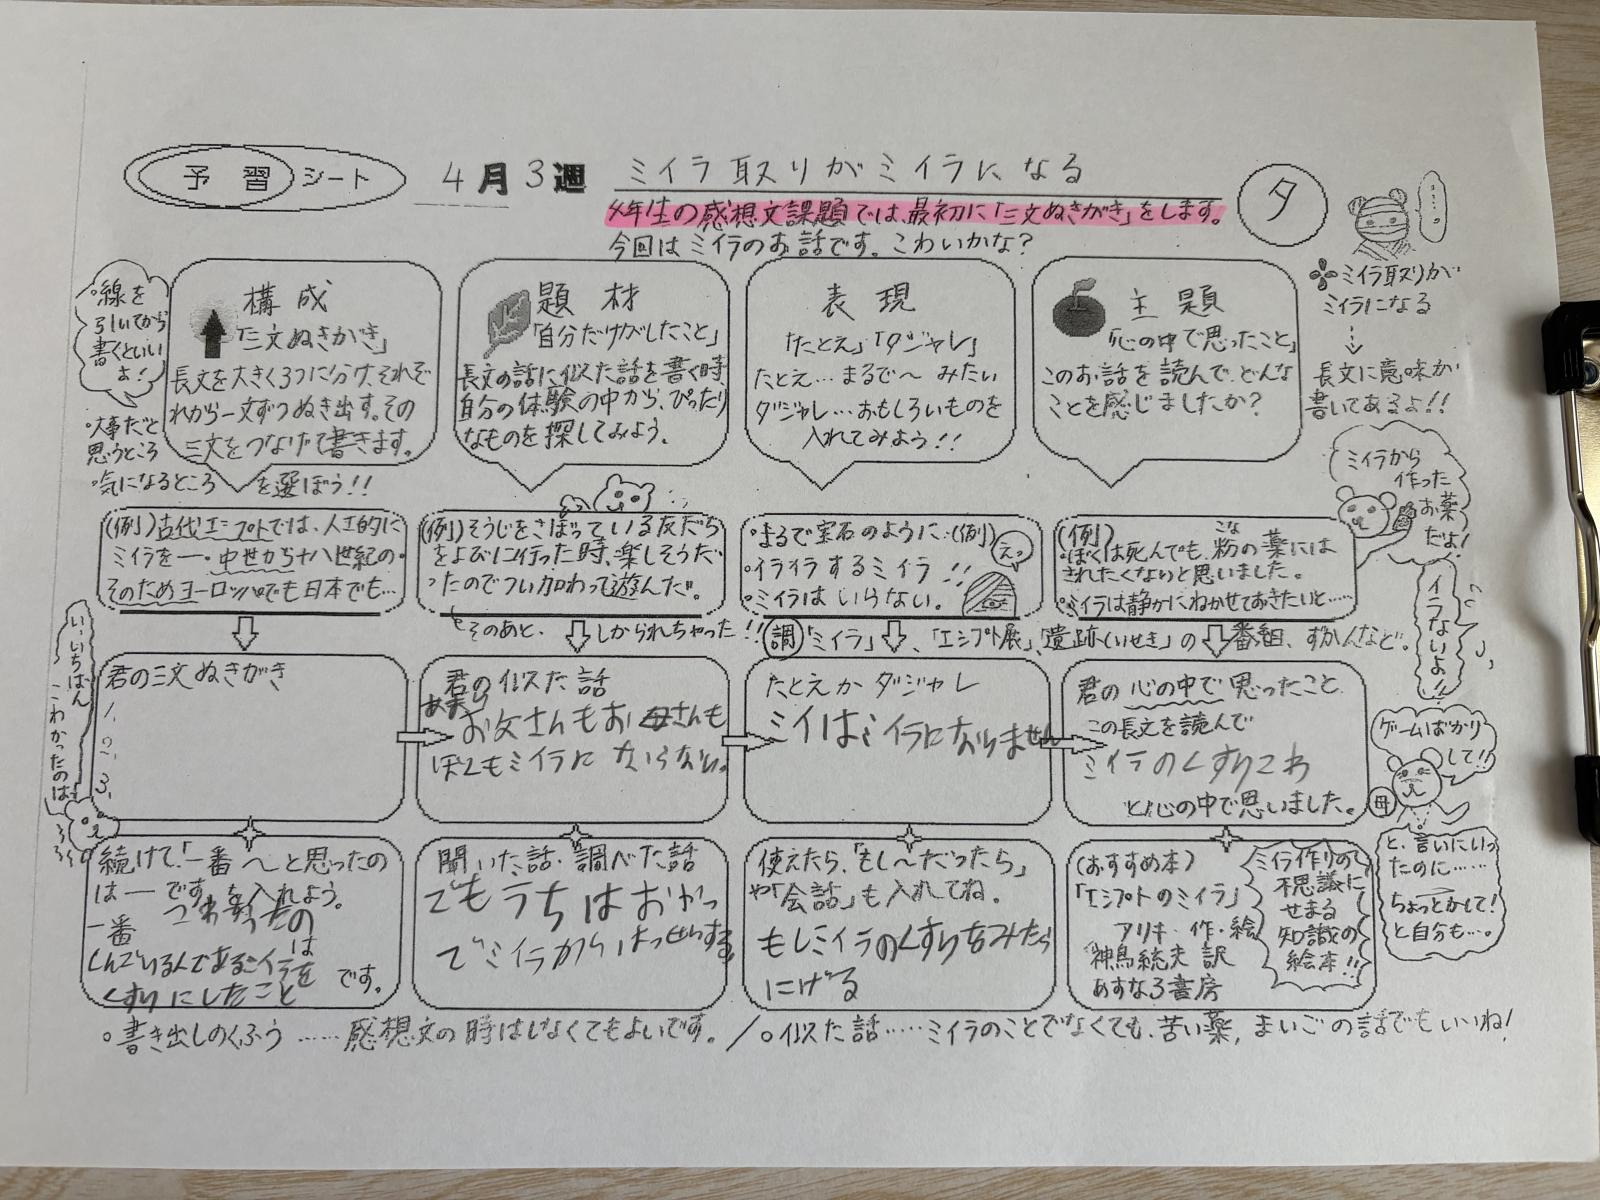 予習シート
4月3週
ミイラ取りがミイラになる
タ
4年生の感想文課題では、最初に「三文ぬきがき」をします。
今回はミイラのお話です。こわいかな?
・・・・。
ミイラ取りが
ミイラになる
長文に意味が
書いてあるよ!!
・線を
引いてから
書くといい
よ!
・大事だと
思うところ
・気になるところ を選ぼう!!
構成
「三文ぬきがき」
長文を大きく3つに分け、それぞ
れから一文ずつぬき出す。その
三文をつなげて書きます。
題材
「自分だけがしたこと」
長文の話に似た話を書く時、
自分の体験の中から、ぴったり
なものを探してみよう。
表現
「たとえ」「ダジャレ」
たとえ…まるで〜みたい
ダジャレ…おもしろいものを
入れてみよう!!
主題
「心の中で思ったこと」
このお話を読んで、どんな
ことを感じましたか?
(例)古代エジプトでは、人工的に
ミイラを―・中世から十八世紀の・
そのためヨーロッパでも日本でも…
(例)そうじをさぼっている友だち
をよびに行った時、楽しそうだ
ったのでつい加わって遊んだ。
そのあと、しかられちゃった!!
・まるで宝石のように…(例)
・イライラするミイラ!!
・ミイラはいらない。
えっ
(例)
・ぼくは死んでも、粉の薬には
こな
されたくないと思いました。
・ミイラは静かにねかせておきたいと……
ミイラから
作った
お薬
だよ!
イラないよ!!
調「ミイラ」、「エジプト展」「遺跡(いせき)」の番組、ずかんなど。
君の三文ぬきがき
1、
2、
3、
君の似た話
お父さんもお母さんも
ぼくもミイラにならない。
たとえかダジャレ
ミイはミイラになりません
君の心の中で思ったこと
この長文を読んで
ミイラのくすりこわ
と心の中で思いました。
ゲームばかり
して!!
母
と、言いにいっ
たのに……
ちょっとかして!
と自分も…。
い、いちばん
こわかったのは
続けて「一番〜と思ったの
は―です」を入れよう。
一番
くすりにしたこと
です。
聞いた話・調べた話
でもうちはおかっ
使えたら、「もし〜だったら」
や「会話」も入れてね。
もしミイラのくすりをみたら
にげる
(おすすめ本)
「エジプトのミイラ」
アリキ 作・絵
神鳥統夫 訳
あすなろ書房
ミイラ作りの
不思議に
せまる
知識の
絵本!!
○書き出しのくふう……感想文の時はしなくてもよいです。/○似た話……ミイラのことでなくても、苦い薬,まいごの話でもいいね!